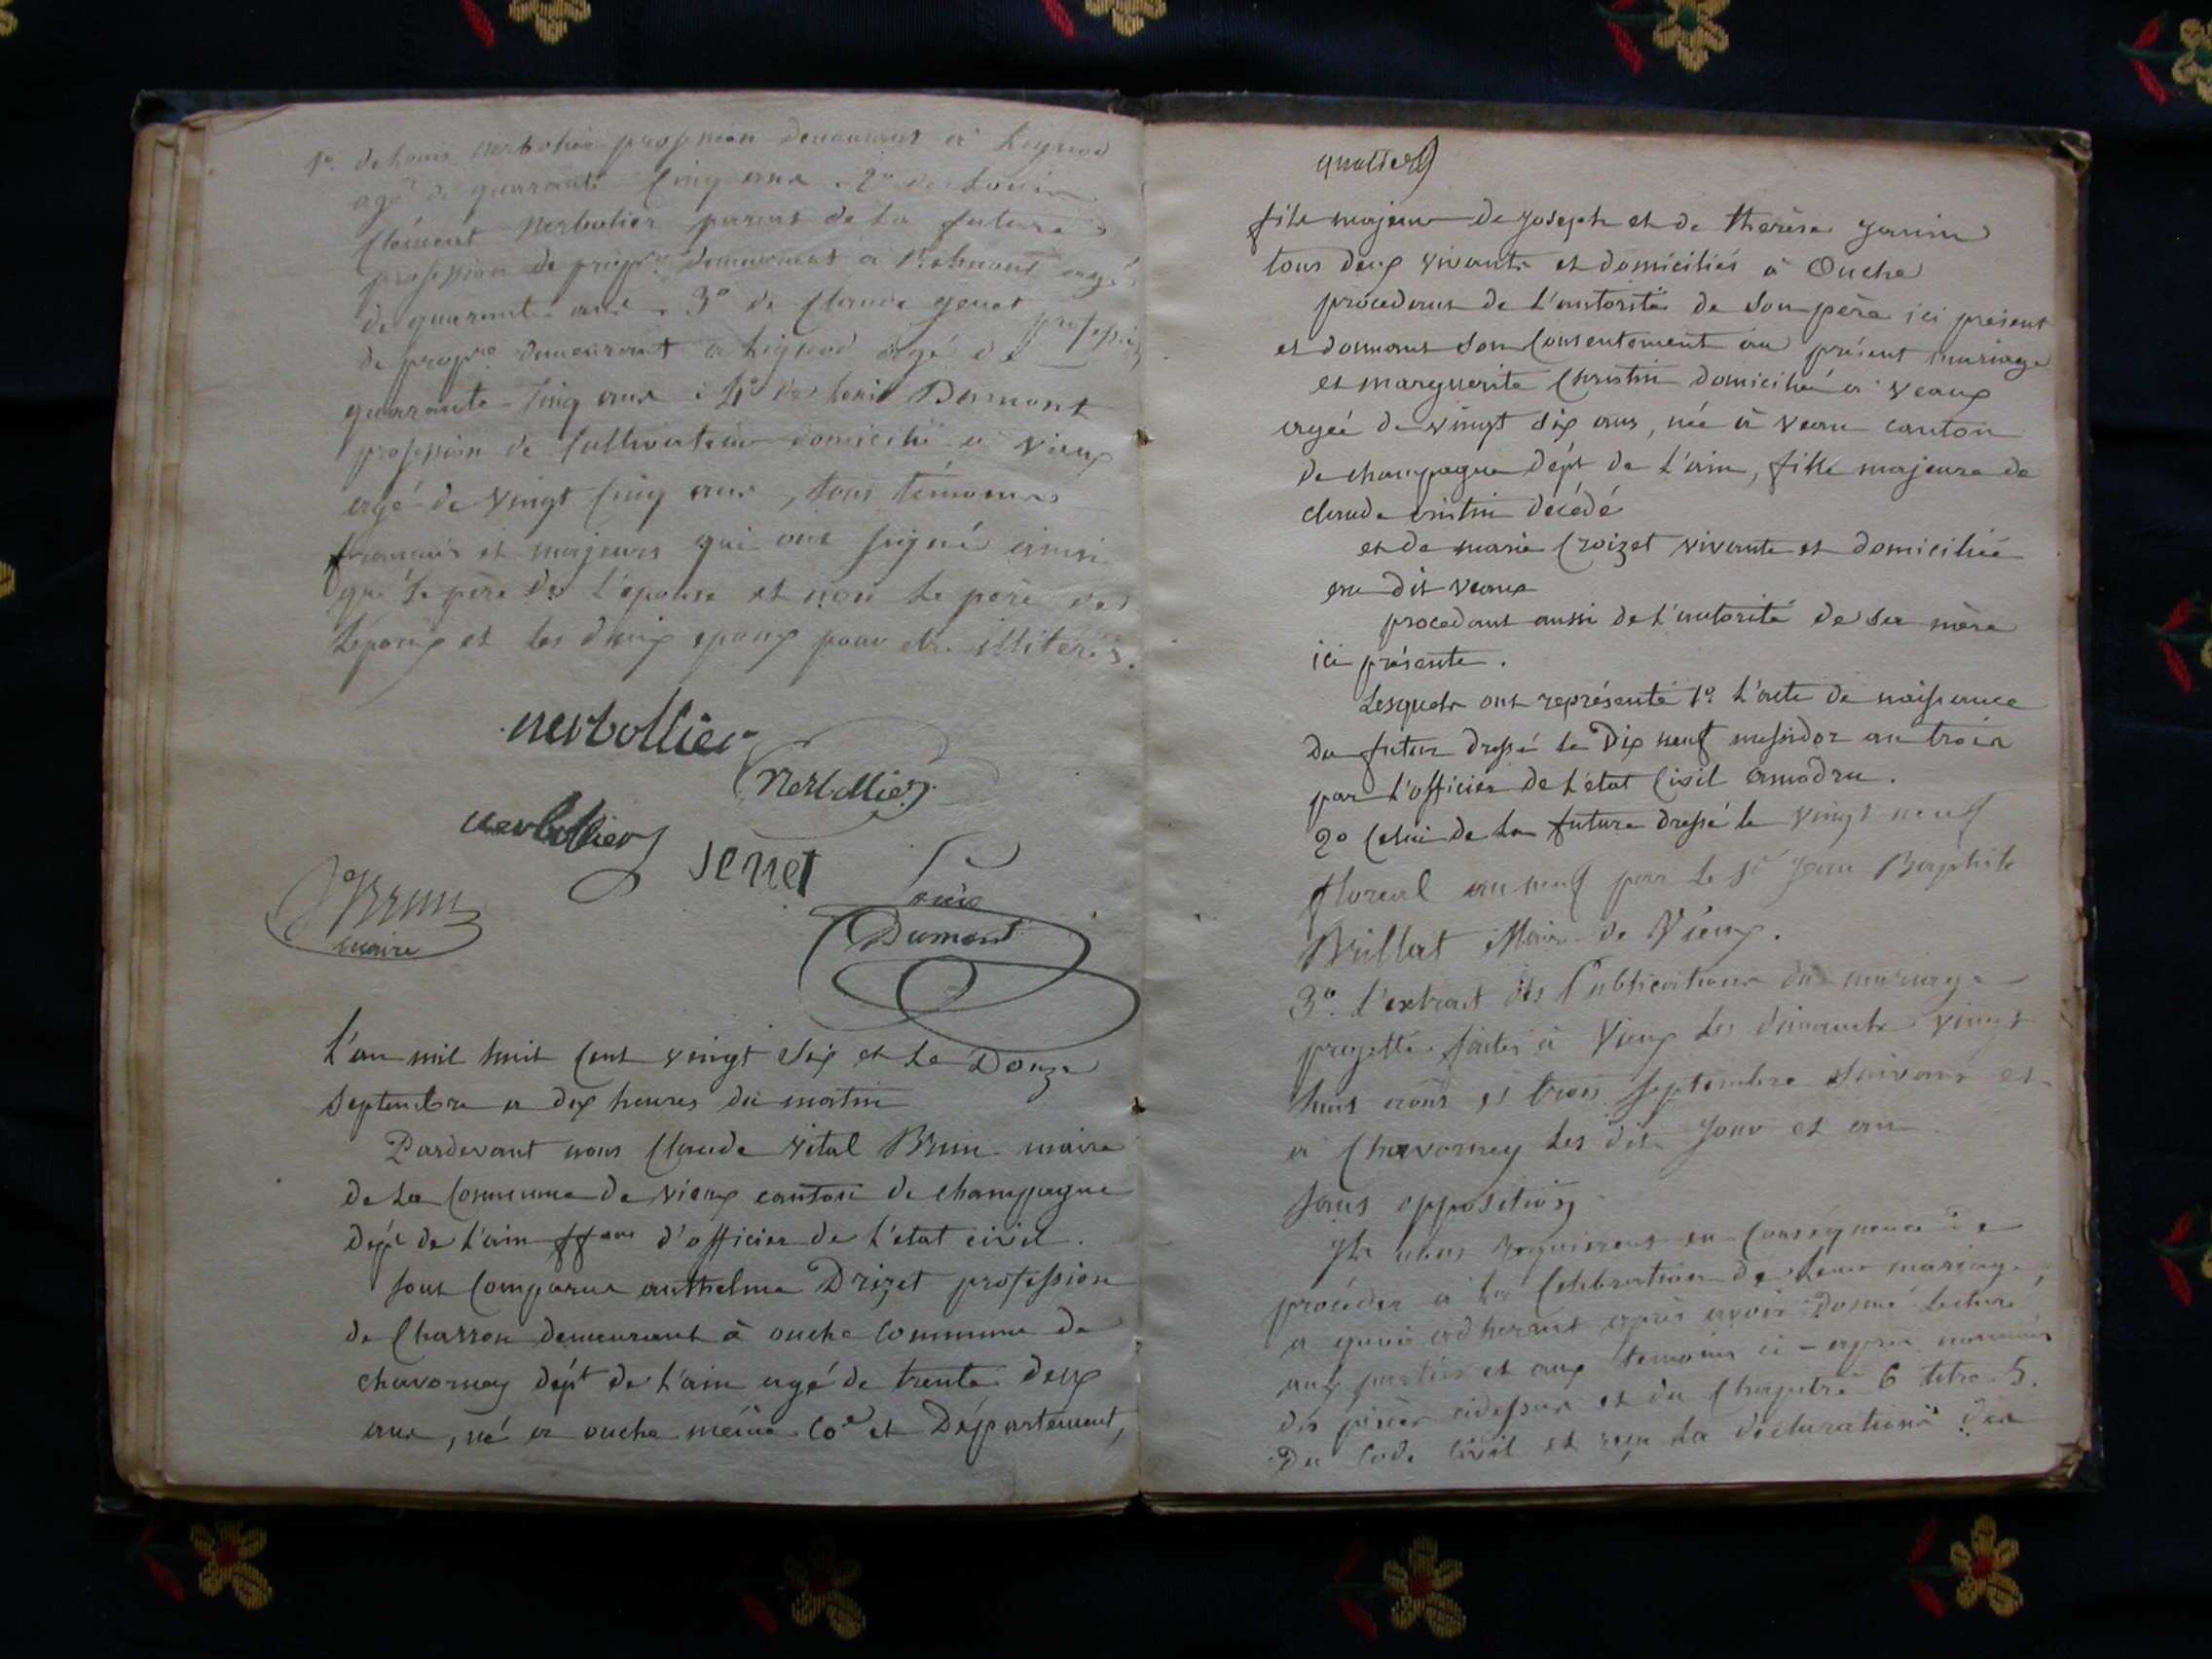 1° de Louis Nerbolier profession demeurant à Lignod
agé de quarante cinq ans. 2° de Louis
Clément Nerbolier parent de la future
profession de propre demeurant a agés
de quarante ans. 3° de Claude genet profession
de propre demeurant a Lignod agé de
quarante-cinq ans. 4° de Louis Dumont
profession de Cultivateur domicilié a Vieux
agé de vingt cinq ans, tous témoins
francais et majeurs qui ont signé ainsi
que le père de l'épouse et non le père de
l'époux et les deux epoux pour etre illiterés.
nerbollier
Nerbollier
nerbollier
Jenet
Louis
Dumont
Brun
maire
L'an mil huit Cent vingt Six et le Douze
Septembre a dix heures du matin
Pardevant nous Claude Vital Brun maire
de la Commune de vieux canton de champagne
dépt de l'ain ffons d'officier de l'etat civil.
sont Comparus anthelme Drizet profession
de Charron demeurant à ouche Commune de
chavornay dépt de l'ain agé de trente deux
ans, né a ouche même Coe et Département,
fils majeur de Joseph et de thérèse Janin
tous deux vivants et domiciliés à Ouche
procedant de l'autorité de Son père ici présent
et donnant Son Consentement au présent mariage
et marguerite Christin domiciliée a Veaux
agée de vingt Six ans, née à Veau canton
de champagne dépt de l'ain, fille majeure de
claude cristin décédé
et de marie Croizet vivante et domiciliée
au dit Veaux
procedant aussi de l'autorité de Sa mère
ici présente.
Lesquels ont représenté 1° L'acte de naissance
du futur dressé le Dix neuf messidor an trois
par l'officier de l'état Civil amodru.
2° Celui de la future dressé le vingt neuf
floreal an neuf par le Sr Jean Baptiste
Brillat Maire de Vieux.
3° L'extrait des Publications du mariage
projetté faites à Vieux les dimanche vingt
huit août et trois Septembre Suivant et
a Chavornay les dits Jour et an
sans opposition
Ils nous requierent en Conséquence de
procéder a la Celébration de leur mariage,
a quoi adherant après avoir Donné lecture,
aux parties et aux temoins ci-apres nommés
des pièces cidessus et du Chapitre 6 titre 5.
Du Code Civil et reçu la déclaration des